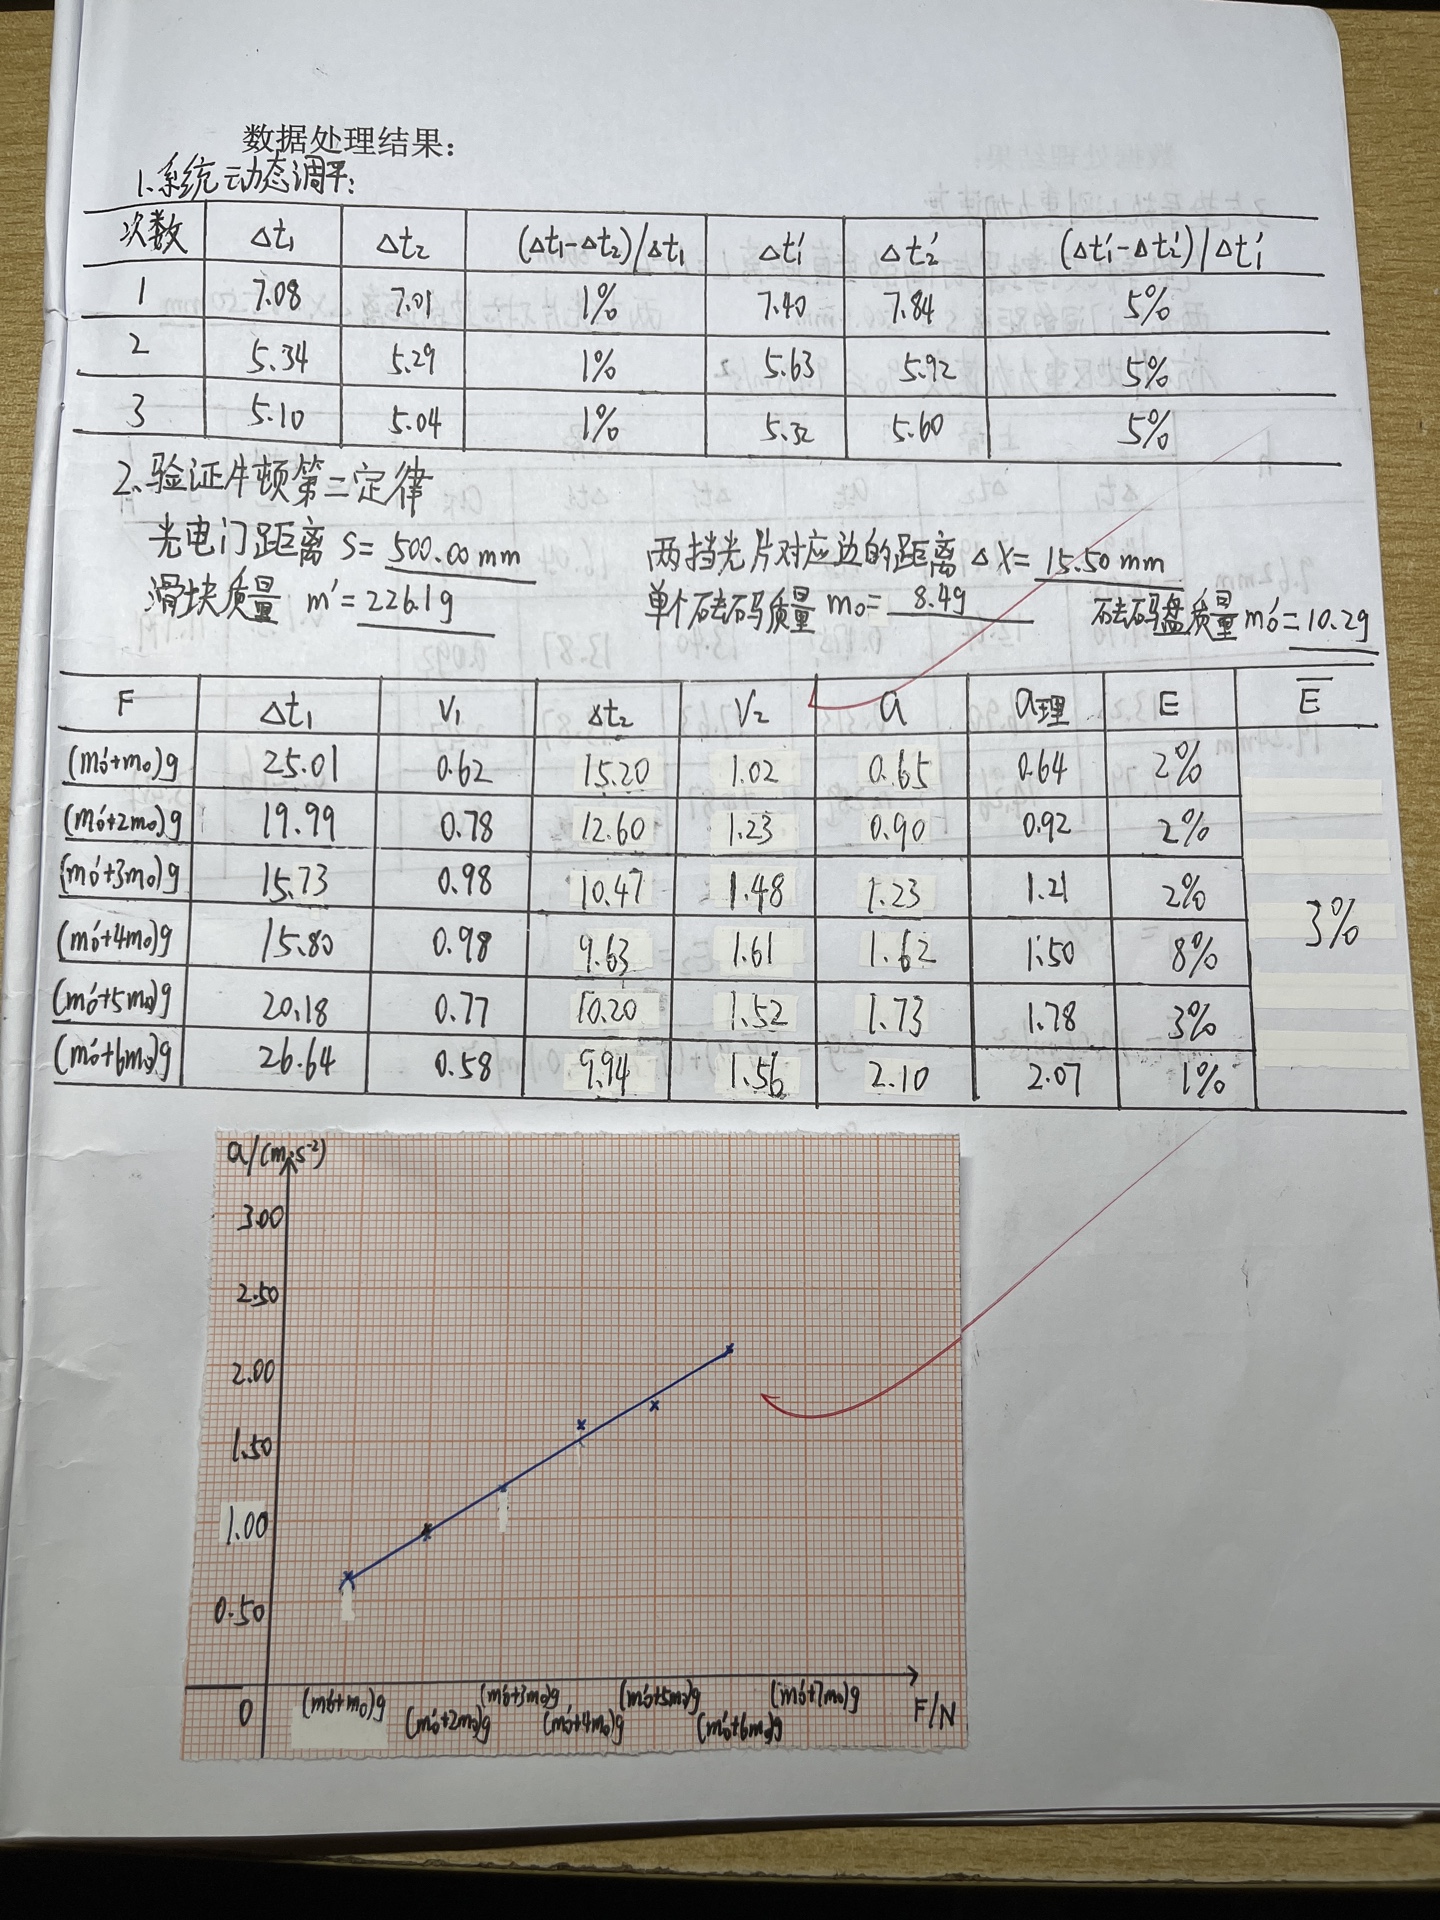 数据处理结果：
1.系统动态调平：
次数 Δt₁ Δt₂ (Δt₁-Δt₂)/Δt₁ Δt₁′ Δt₂′ (Δt₁′-Δt₂′)/Δt₁′
1 7.08 7.01 1% 7.40 7.84 5%
2 5.34 5.29 1% 5.63 5.92 5%
3 5.10 5.04 1% 5.32 5.60 5%
2.验证牛顿第二定律
光电门距离 S= 500.00mm 两挡光片对应边的距离ΔX= 15.50mm
滑块质量 m′= 226.1g 单个砝码质量 m₀= 8.49 砝码盘质量 m₀′=10.2g
F Δt₁ V₁ Δt₂ V₂ a a理 E E̅
(m₀′+m₀)g 25.01 0.62 15.20 1.02 0.65 0.64 2%
(m₀′+2m₀)g 19.99 0.78 12.60 1.23 0.90 0.92 2%
(m₀′+3m₀)g 15.73 0.98 10.47 1.48 1.23 1.21 2%
(m₀′+4m₀)g 15.80 0.98 9.63 1.61 1.62 1.50 8% 3%
(m₀′+5m₀)g 20.18 0.77 10.20 1.52 1.73 1.78 3%
(m₀′+6m₀)g 26.64 0.58 9.94 1.56 2.10 2.07 1%
a/(m·s⁻²)
3.00
2.50
2.00
1.50
1.00
0.50
0 (m₀′+m₀)g (m₀′+2m₀)g (m₀′+3m₀)g (m₀′+4m₀)g (m₀′+5m₀)g (m₀′+6m₀)g (m₀′+7m₀)g F/N